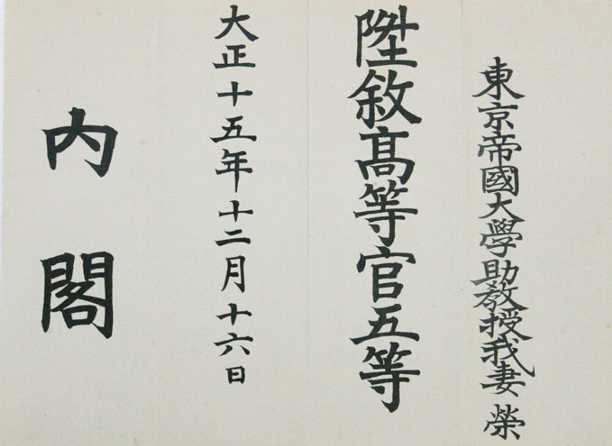 東京帝國大學助教授我妻榮
陞敘髙等官五等
大正十五年十二月十六日
内閣